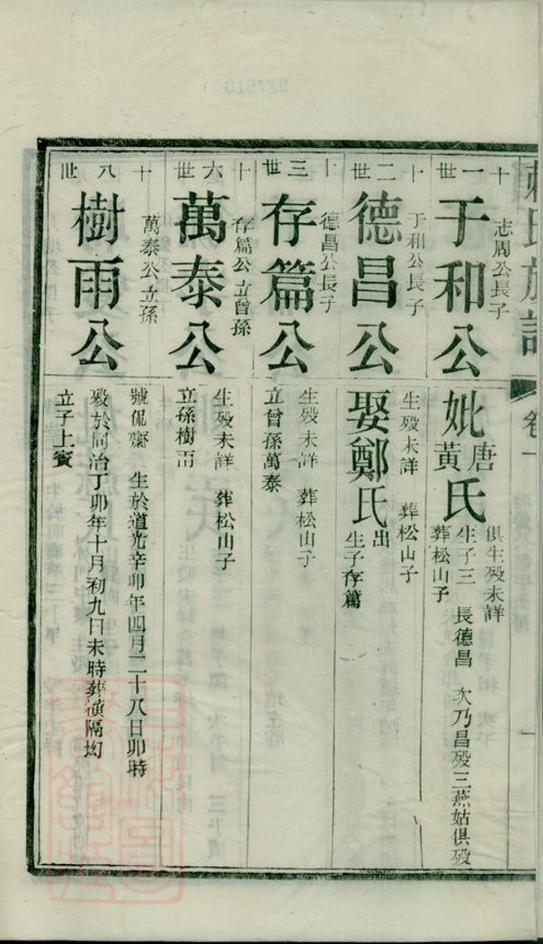 氏族譜
卷一
十一世
志周公長子
于和公
妣唐黃氏
俱生歿未詳
生子三 長德昌 次乃昌歿三燕姑俱歿
葬松山子
十二世
于和公長子
德昌公
生歿未詳 葬松山子
娶鄭氏
出
生子存篇
十三世
德昌公長子
存篇公
生歿未詳 葬松山子
立曾孫萬泰
十六世
存篇公立曾孫
萬泰公
生歿未詳 葬松山子
立孫樹雨
十八世
萬泰公立孫
樹雨公
號侃齋 生於道光辛卯年四月二十八日卯時
歿於同治丁卯年十月初九日未時葬橫隔㘭
立子上賓